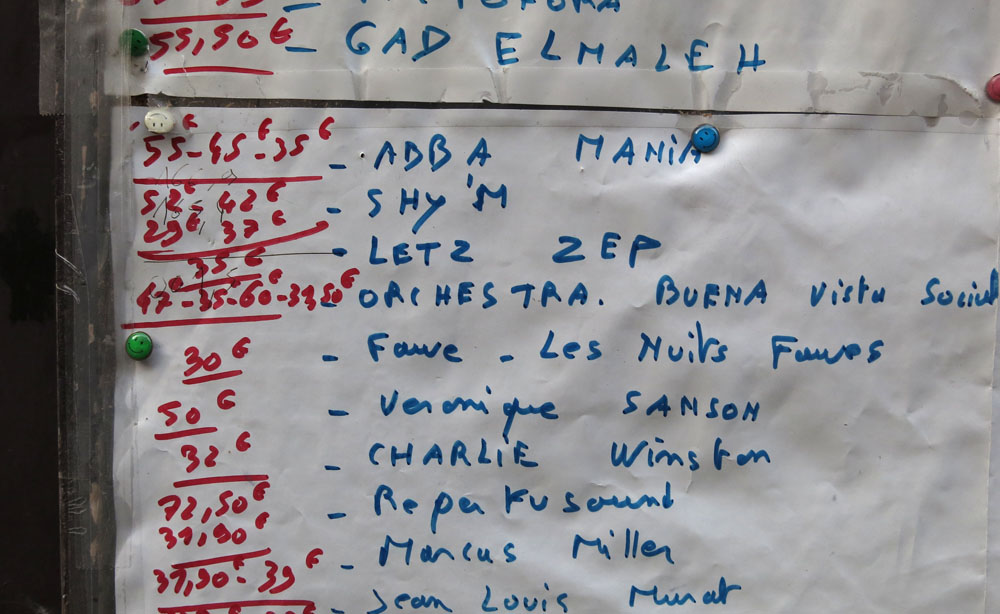 55,50€ - GAD ELMALEH
55€-45€-35€ - ABBA MANiA
52€-42€ - SHY'M
29€ 37€
35€ - LETZ ZEP
47€-35€-60€-39,50€ - ORCHESTRA. BUENA Vista Social
30€ - Fauve - Les Nuits Fauves
50€ - Veronique SANSON
32€ - CHARLIE Winston
72,50€ - Reperkusound
31,90€ - Marcus Miller
37,90€-39€ - Jean Louis Murat